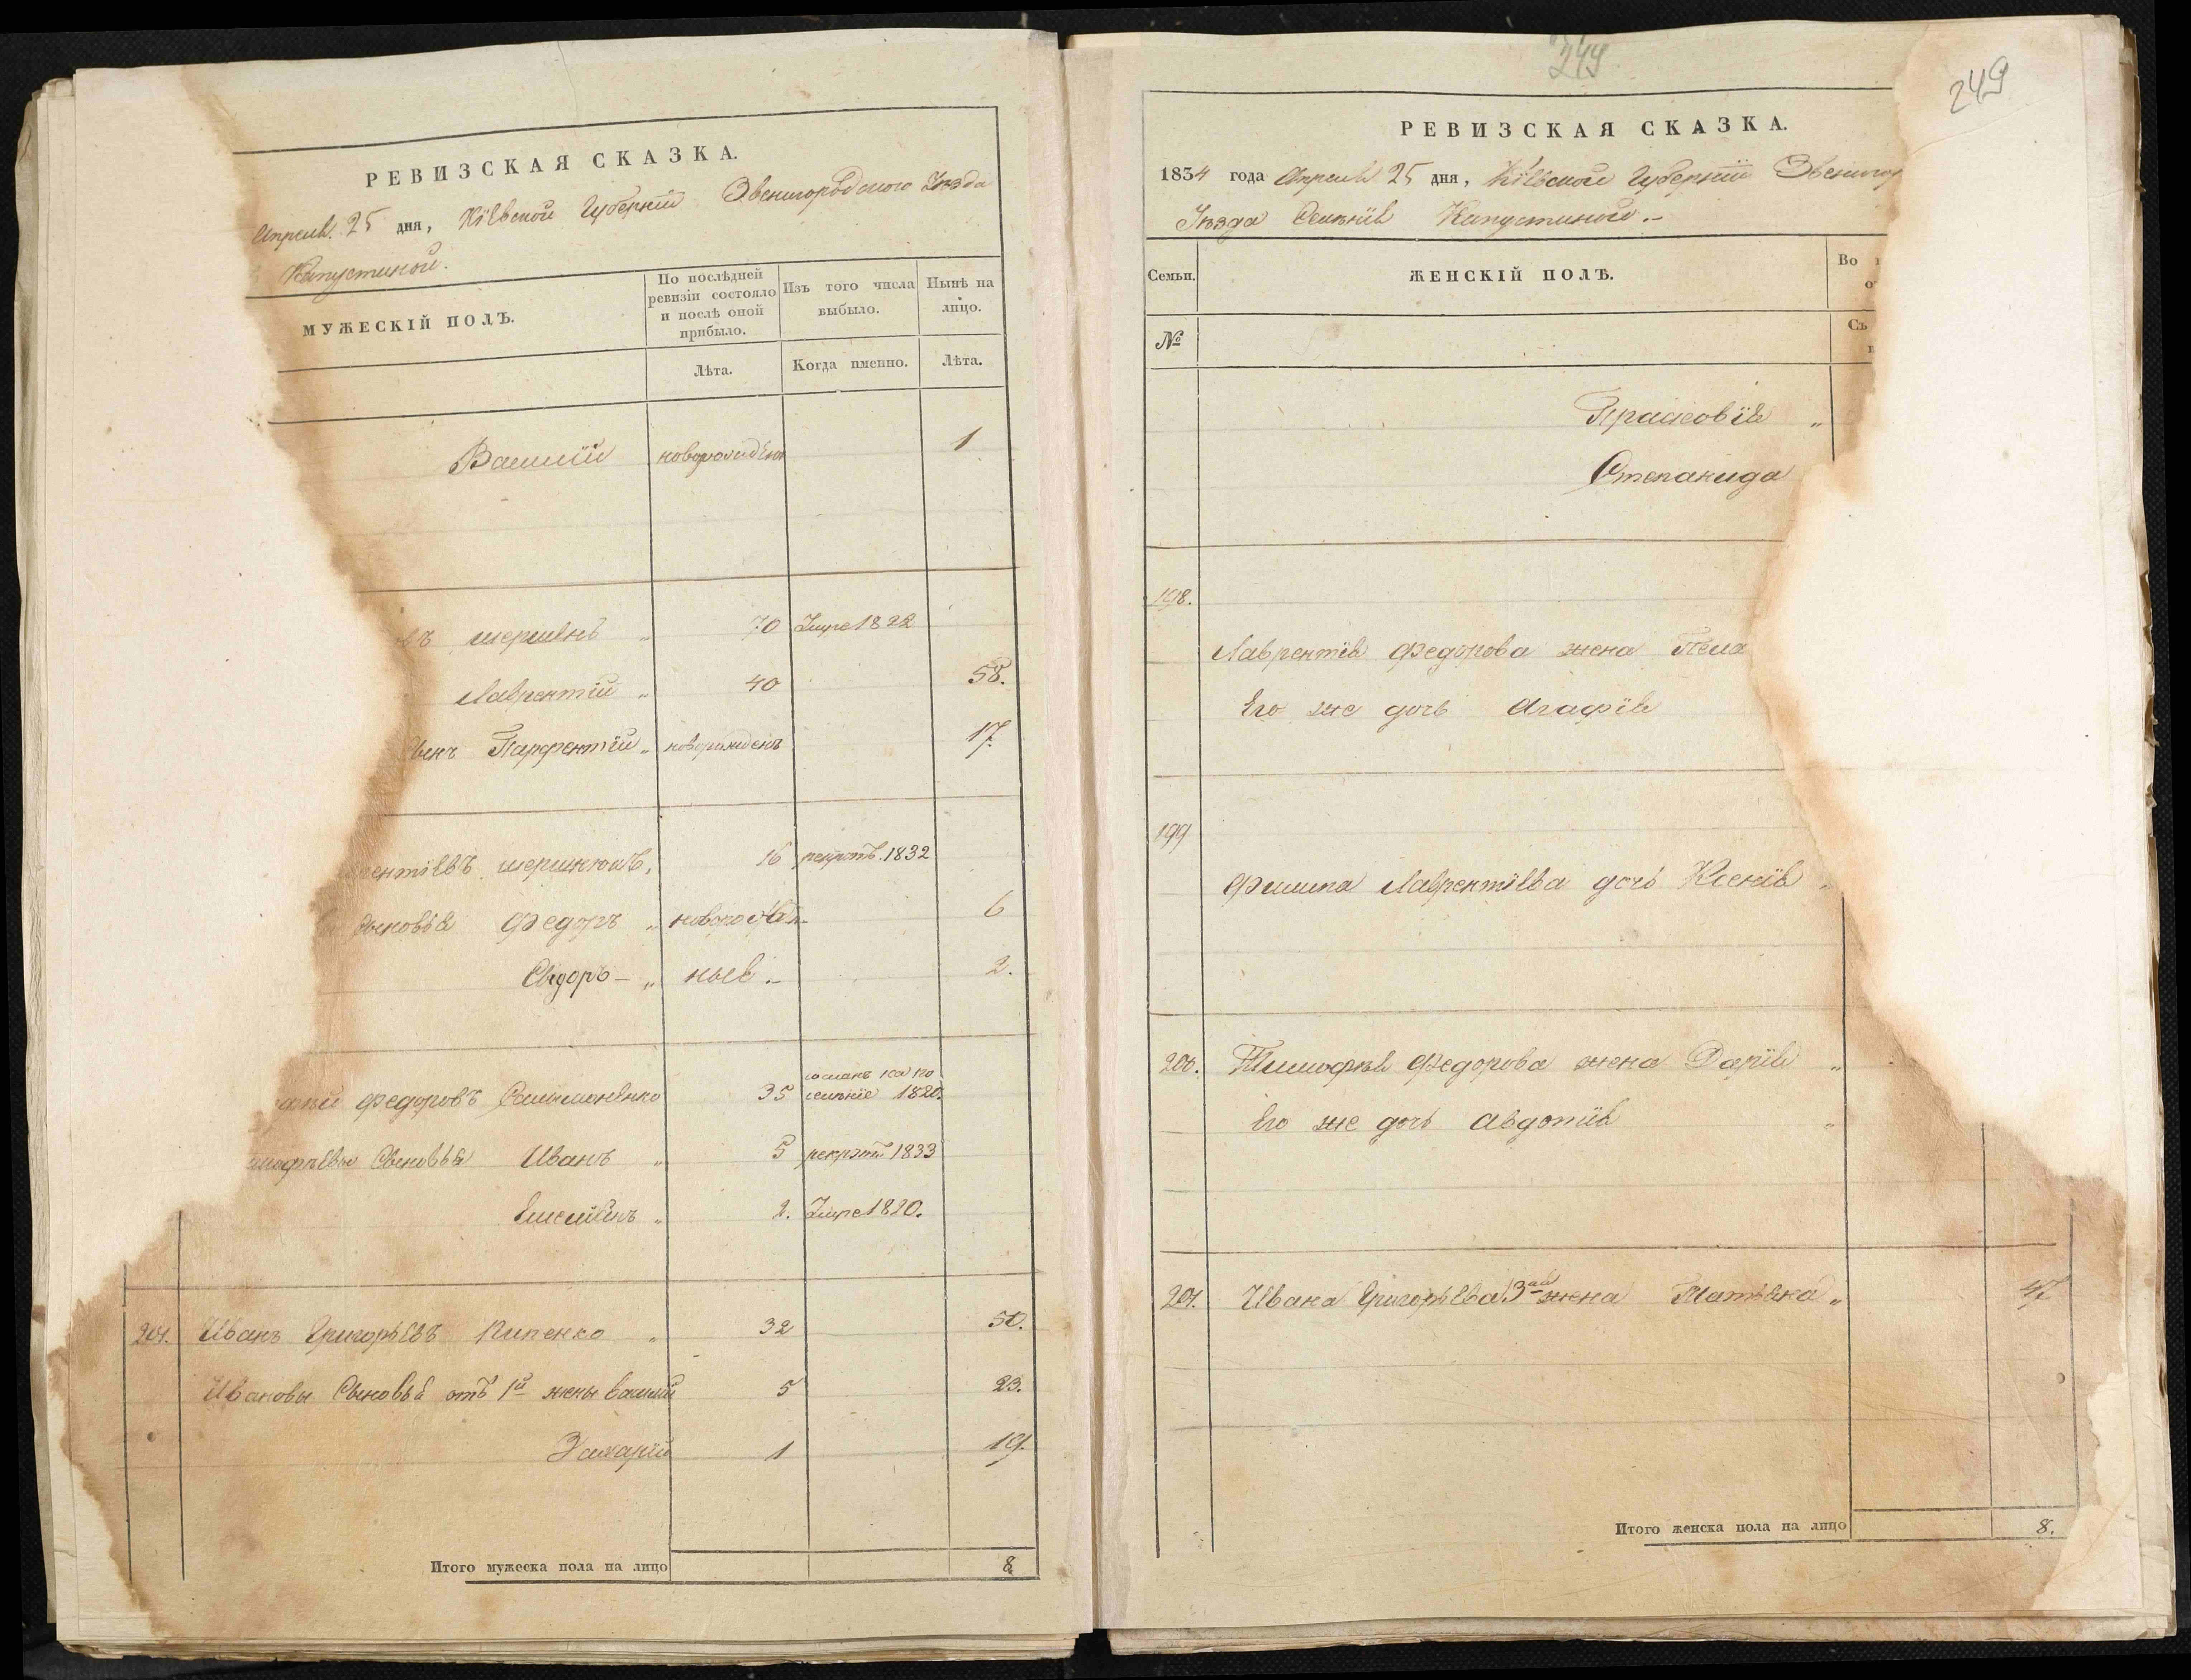 РЕВИЗСКАЯ СКАЗКА.
Апреля 25 дня, Кіевской Губерніи Звенигородского Уезда
Капустиной.
МУЖЕСКІЙ ПОЛЪ.
По послѣдней ревизіи состояло и послѣ оной прибыло.
Изъ того числа выбыло.
Нынѣ на лицо.
Лѣта.
Когда именно.
Лѣта.
Василій новорожден 1
въ „ 70 Умре 1822
Лаврентій „ 40 58.
Парфентій „ новорожденъ 17.
рентіевъ 16 рекрутъ. 1832
сыновья Федоръ „ 6
Сидоръ — „ 2.
Федоровъ 35 1820.
Тимофѣевы Сыновья Иванъ „ 5 рекрутъ 1833
„ 2. Умре 1820.
201. Иванъ Григорьевъ Кипенко „ 32 50.
Ивановы Сыновья отъ 1й жены Василій 5 23.
Захарій 1 19.
Итого мужеска пола на лицо 8
249
249
РЕВИЗСКАЯ СКАЗКА.
1834 года Апреля 25 дня, Кіевской Губерніи Звенигор
Уезда Селенія Капустиной.–
Семьи.
ЖЕНСКІЙ ПОЛЪ.
Во
№
Съ
Прасковія „
Степанида
198.
Лаврентія Федорова жена Пела
Его же дочь Агафія
199
Филипа Лаврентіева дочь Ксенія „
200. Тимофѣя Федорова жена Дарія „
Его же дочь Авдотія „
201. Ивана Григорьева 3ая жена Татьяна „ 47
Итого женска пола на лицо 8.